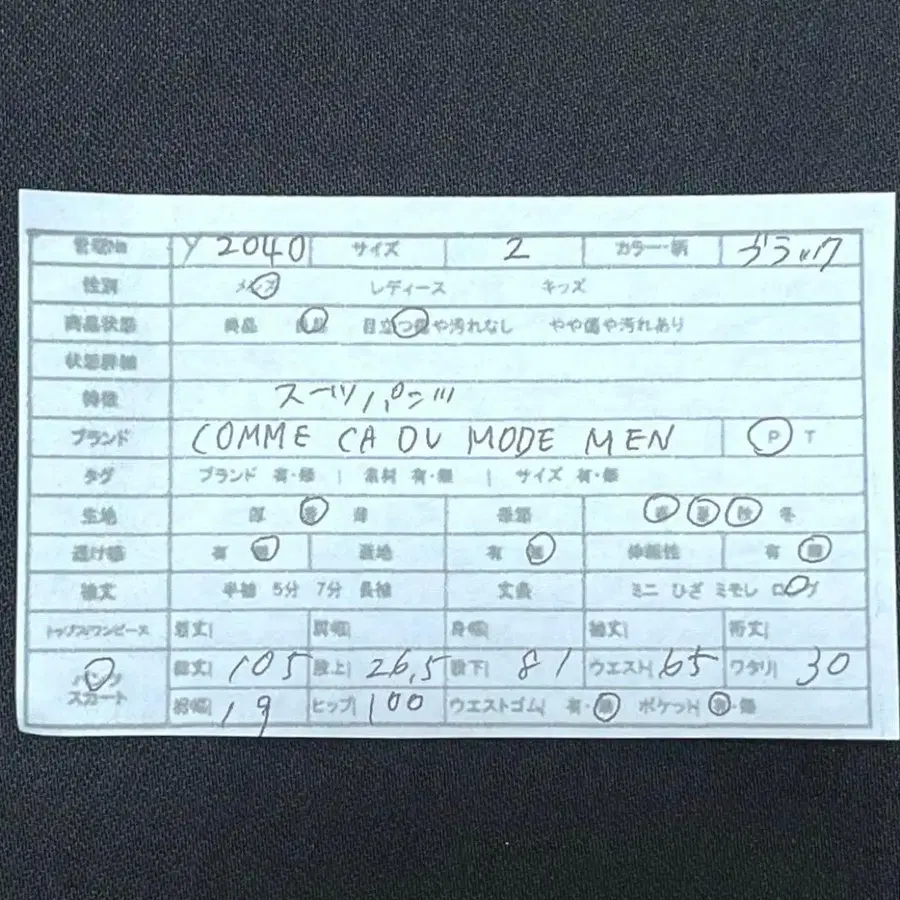 管理No Y2040 サイズ 2 カラー・柄 ブラック
性別 メンズ レディース キッズ
商品状態 美品 良品 目立つ傷や汚れなし やや傷や汚れあり
状態詳細
特徴 スーツパンツ
ブランド COMME CA DU MODE MEN P T
タグ ブランド 有・無 | 素材 有・無 | サイズ 有・無
生地 厚 普 薄 季節 春 夏 秋 冬
透け感 有 無 裏地 有 無 伸縮性 有 無
袖丈 半袖 5分 7分 長袖 丈長 ミニ ひざ ミモレ ロング
トップス/ワンピース 着丈| 肩幅| 身幅| 袖丈| 裄丈|
パンツ スカート 総丈| 105 股上| 26,5 股下| 81 ウエスト| 65 ワタリ| 30
裾幅| 19 ヒップ| 100 ウエストゴム| 有・無 ポケット| 有・無